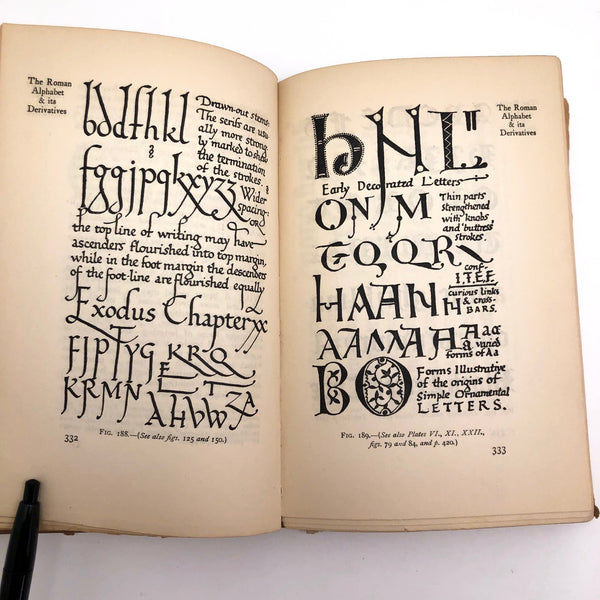 The Roman
Alphabet
& its
Derivatives
bdfhkl
Drawn-out stems:
The serifs are usu-
ally more strong-
ly marked to shew
the termination
of the strokes.
&
fggjpqkxyzz
Wider
spacing:
on
the top line of writing may have
ascenders flourished into top margin,
while in the foot margin the descenders
of the foot-line are flourished equally
Exodus Chapter xx
FJPTYG
KRMN
KRQ
ELTZA
AHVW
FIG. 188.—(See also figs. 125 and 150.)
332
The Roman
Alphabet
& its
Derivatives
hNL
Early Decorated Letters
ONM
Thin parts
strengthened
with knobs
and "buttress"
strokes.
EQQR
conf-
I.T.E.F.
HAANH
curious links
& cross-
BARS.
AAMAHA
a varied
forms of Aa
BO
Forms Illustrative
of the origins of
Simple Ornamental
LETTERS.
FIG. 189.—(See also Plates VI., XI., XXII.,
figs. 79 and 84, and p. 420.)
333